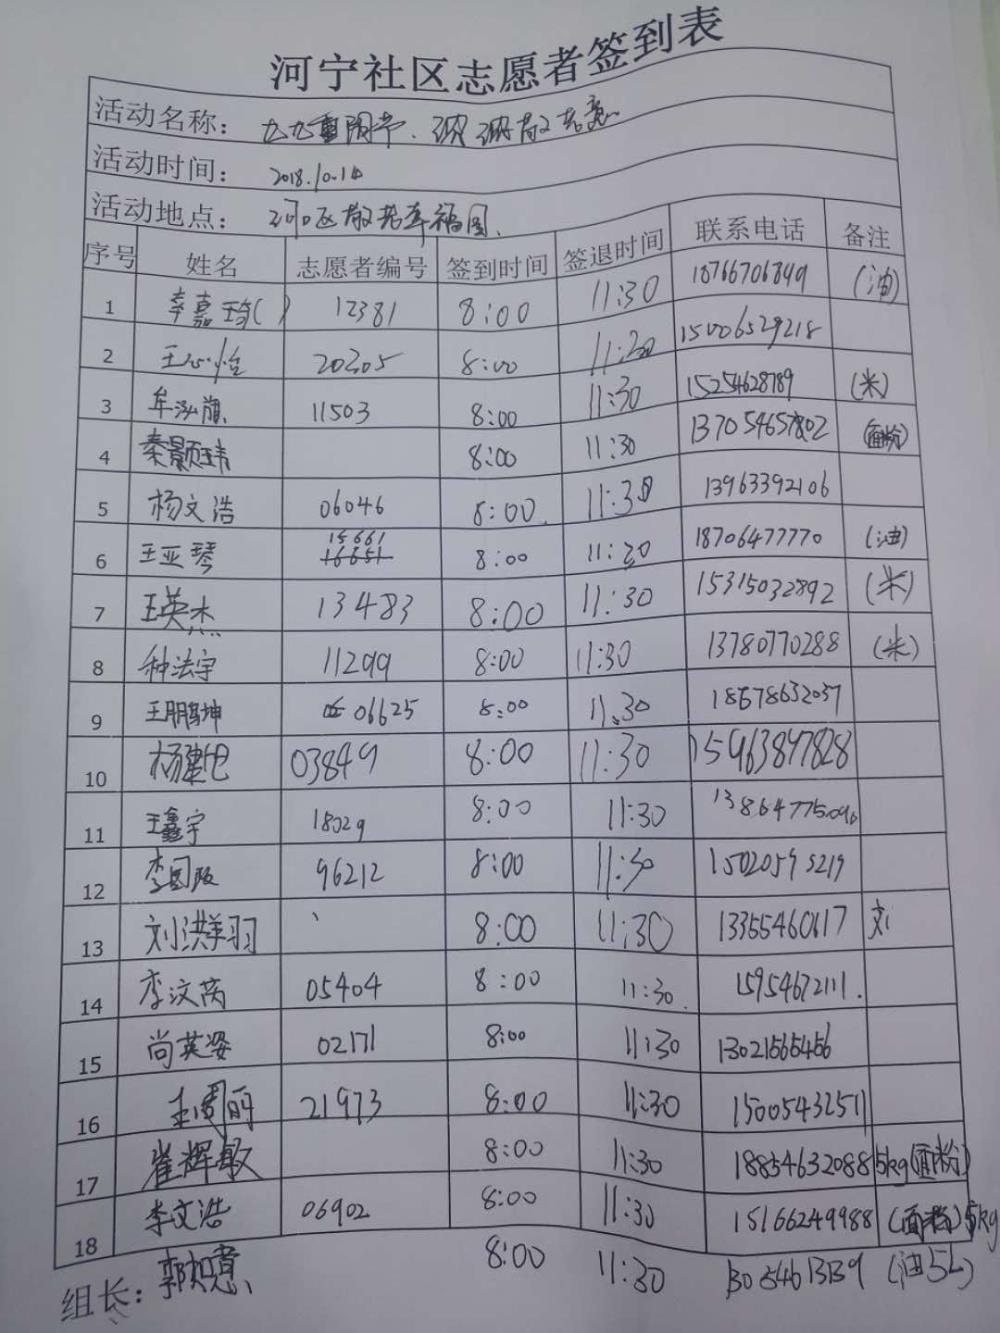 河宁社区志愿者签到表
活动名称：九九重阳节、
活动时间：2018.10.14
活动地点：河口区敬老幸福园、
序号 姓名 志愿者编号 签到时间 签退时间 联系电话 备注
1 李嘉琦( ) 12381 8:00 11:30 18766706849 (油)
2 王心怡 20305 8:00 11:30 15006529218
3 牟泓旗 11503 8:00 11:30 15254628789 (米)
4 秦颢玮 8:00 11:30 13705465802 (面粉)
5 杨文浩 06046 8:00 11:30 13963392106
6 王亚琴 15661 8:00 11:20 18706477770 (油)
7 王英杰 13483 8:00 11:30 15315032892 (米)
8 种法宇 11299 8:00 11:30 13780770288 (米)
9 王鹏坤 06625 8:00 11:30 18678632037
10 杨 03849 8:00 11:30 15963897828
11 王鑫宇 18029 8:00 11:30 13864775096
12 李国 96212 8:00 11:30 15020595219
13 刘洪羽 8:00 11:30 13355460617 刘
14 李汶芮 05404 8:00 11:30 15954672111.
15 尚英姿 02171 8:00 11:30 13021565456
16 王周丽 21973 8:00 11:30 15005432511
17 崔辉敏 8:00 11:30 18854632088 5kg(面粉)
18 李文浩 06902 8:00 11:30 15166249988 (面粉)5kg
组长：郭如意 8:00 11:30 13054613139 (油5L)